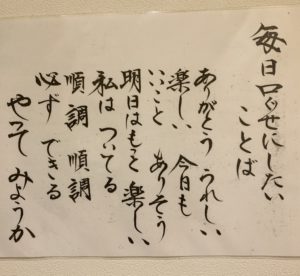 毎日口ぐせにしたい
ことば
ありがとう うれしい
楽しい 今日も
いいこと ありそう
明日はもっと楽しい
私は ついてる
順調 順調
必ず できる
やって みようか